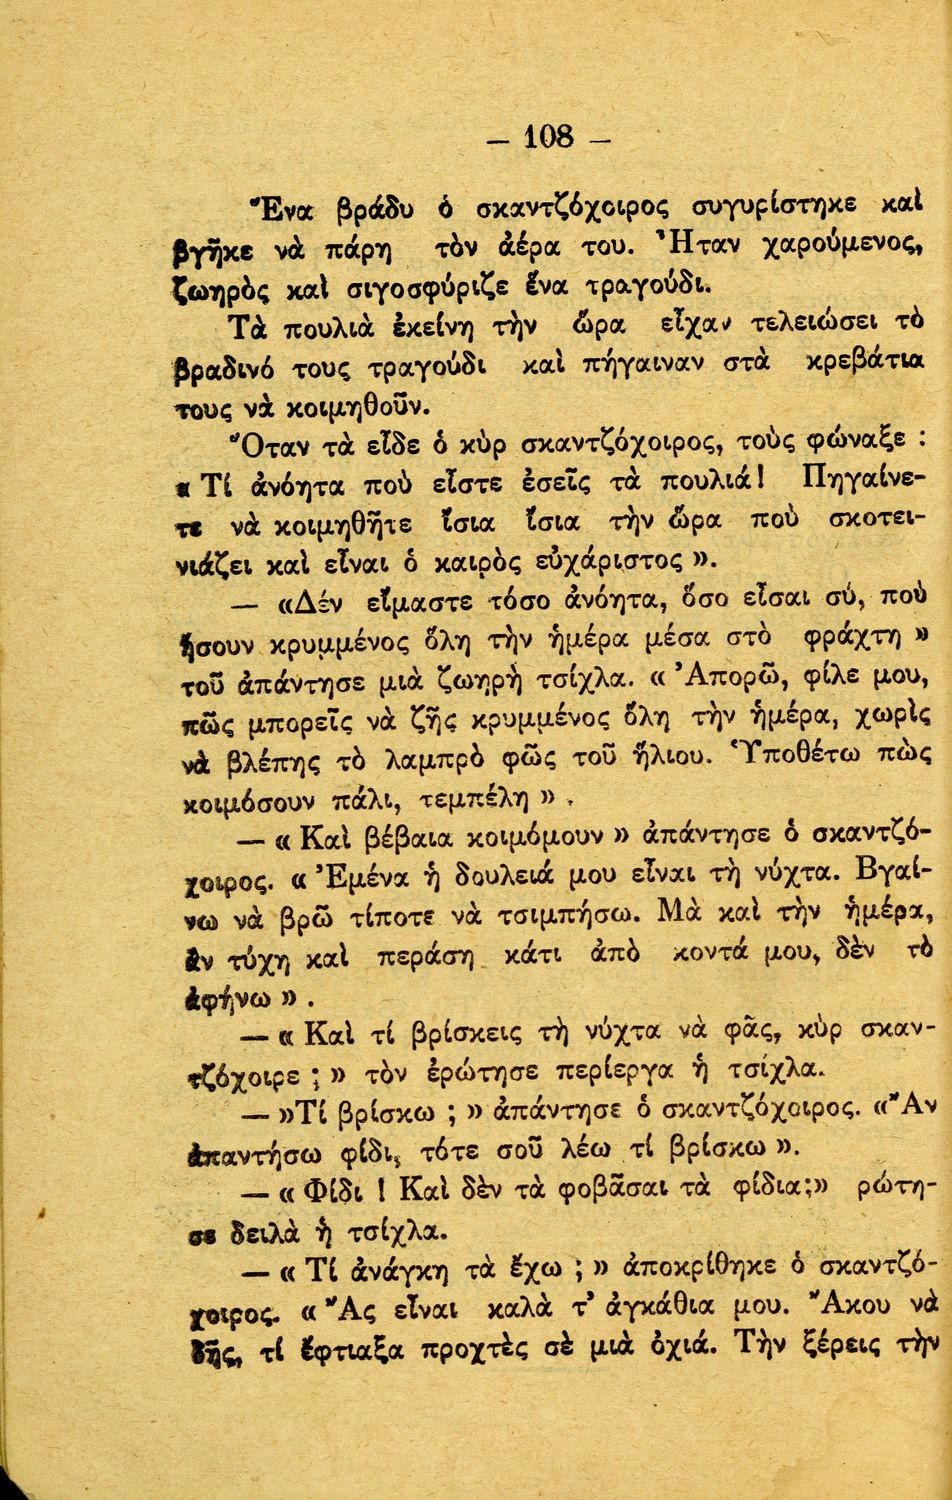 — 108 —
Ἕνα βράδυ ὁ σκαντζόχοιρος συγυρίστηκε καὶ
βγῆκε νὰ πάρη τὸν ἀέρα του. Ἦταν χαρούμενος,
ζωηρὸς καὶ σιγοσφύριζε ἕνα τραγούδι.
Τὰ πουλιὰ ἐκείνη τὴν ὥρα εἶχαν τελειώσει τὸ
βραδινό τους τραγούδι καὶ πήγαιναν στὰ κρεβάτια
τους νὰ κοιμηθοῦν.
Ὅταν τὰ εἶδε ὁ κὺρ σκαντζόχοιρος, τοὺς φώναξε :
« Τί ἀνόητα ποὺ εἶστε ἐσεῖς τὰ πουλιά! Πηγαίνε-
τε νὰ κοιμηθῆτε ἴσια ἴσια τὴν ὥρα ποὺ σκοτει-
νιάζει καὶ εἶναι ὁ καιρὸς εὐχάριστος ».
— «Δέν εἴμαστε τόσο ἀνόητα, ὅσο εἶσαι σύ, ποὺ
ἤσουν κρυμμένος ὅλη τὴν ἡμέρα μέσα στὸ φράχτη »
τοῦ ἀπάντησε μιὰ ζωηρὴ τσίχλα. « Ἀπορῶ, φίλε μου,
πῶς μπορεῖς νὰ ζῆς κρυμμένος ὅλη τὴν ἡμέρα, χωρὶς
νὰ βλέπης τὸ λαμπρὸ φῶς τοῦ ἥλιου. Ὑποθέτω πὼς
κοιμόσουν πάλι, τεμπέλη » .
— « Καὶ βέβαια κοιμόμουν » ἀπάντησε ὁ σκαντζό-
χοιρος. « Ἐμένα ἡ δουλειά μου εἶναι τὴ νύχτα. Βγαί-
νω νὰ βρῶ τίποτε νὰ τσιμπήσω. Μὰ καὶ τὴν ἡμέρα,
ἂν τύχη καὶ περάση κάτι ἀπὸ κοντά μου, δὲν τὸ
ἀφήνω » .
— « Καὶ τί βρίσκεις τὴ νύχτα νὰ φᾶς, κὺρ σκαν-
τζόχοιρε ; » τὸν ἐρώτησε περίεργα ἡ τσίχλα.
— »Τί βρίσκω ; » ἀπάντησε ὁ σκαντζόχοιρος. «Ἂν
ἀπαντήσω φίδι, τότε σοῦ λέω τί βρίσκω ».
— « Φίδι ! Καὶ δὲν τὰ φοβᾶσαι τὰ φίδια;» ρώτη-
σε δειλὰ ἡ τσίχλα.
— « Τί ἀνάγκη τὰ ἔχω ; » ἀποκρίθηκε ὁ σκαντζό-
χοιρος. « Ἂς εἶναι καλὰ τ' ἀγκάθια μου. Ἄκου νὰ
δῆς, τί ἔφτιαξα προχτὲς σὲ μιὰ ὀχιά. Τὴν ξέρεις τὴν